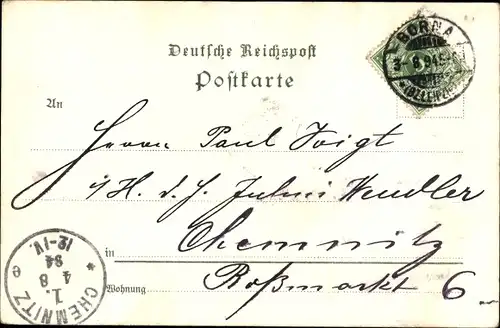 BORNA
3-8 94
(BZ.LEIPZIG)
Deutsche Reichspost
Postkarte
An
Herrn Paul Voigt
i/H. d. H. Julius Wendler
in Chemnitz
Wohnung Roßmarkt 6
CHEMNITZ 1.
4 8 94
12-1 V.
* e